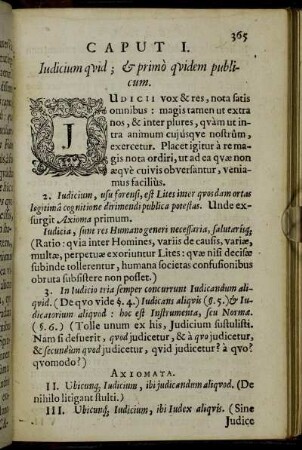 365
CAPUT I.
Iudicium qvid; & primò qvidem publi-
cum.
JUDICII vox & res, nota satis
omnibus: magis tamen ut extra
nos, & inter plures, qvàm ut in-
tra animum cujúsqve nostrûm,
exercetur. Placet igitur à re ma-
gis nota ordiri, ut ad ea qvæ non
æqvè cuivis obversantur, venia-
mus faciliùs.
2. Iudicium, usu forensi, est Lites inter qvosdam ortas
legitimâ cognitione derimendi publica potestas. Unde ex-
surgit Axioma primum.
Iudicia, sunt res Humano generi necessaria, salutariáq;
(Ratio: qvia inter Homines, variis de causis, variæ,
multæ, perpetuæ exoriuntur Lites: qvæ nisi decisæ
subinde tollerentur, humana societas confusionibus
obruta subsistere non posset.)
3. In Iudicio tria semper concurrunt Iudicandum ali-
qvid. (De qvo vide §. 4.) Iudicans aliqvis (§. 5.) & Iu-
dicatorium aliqvod: hoc est Instrumenta, seu Norma.
(§. 6.) (Tolle unum ex his, Judicium sustulisti.
Nam si defuerit, qvod judicetur, & à qvo judicetur,
& secundùm qvod judicetur, qvid judicetur? à qvo?
qvomodo?)
AXIOMATA.
II. Ubicunq; Iudicium, ibi judicandum aliqvod. (De
nihilo litigant stulti.)
III. Ubicunq; Iudicium, ibi Iudex aliqvis. (Sine
Judice